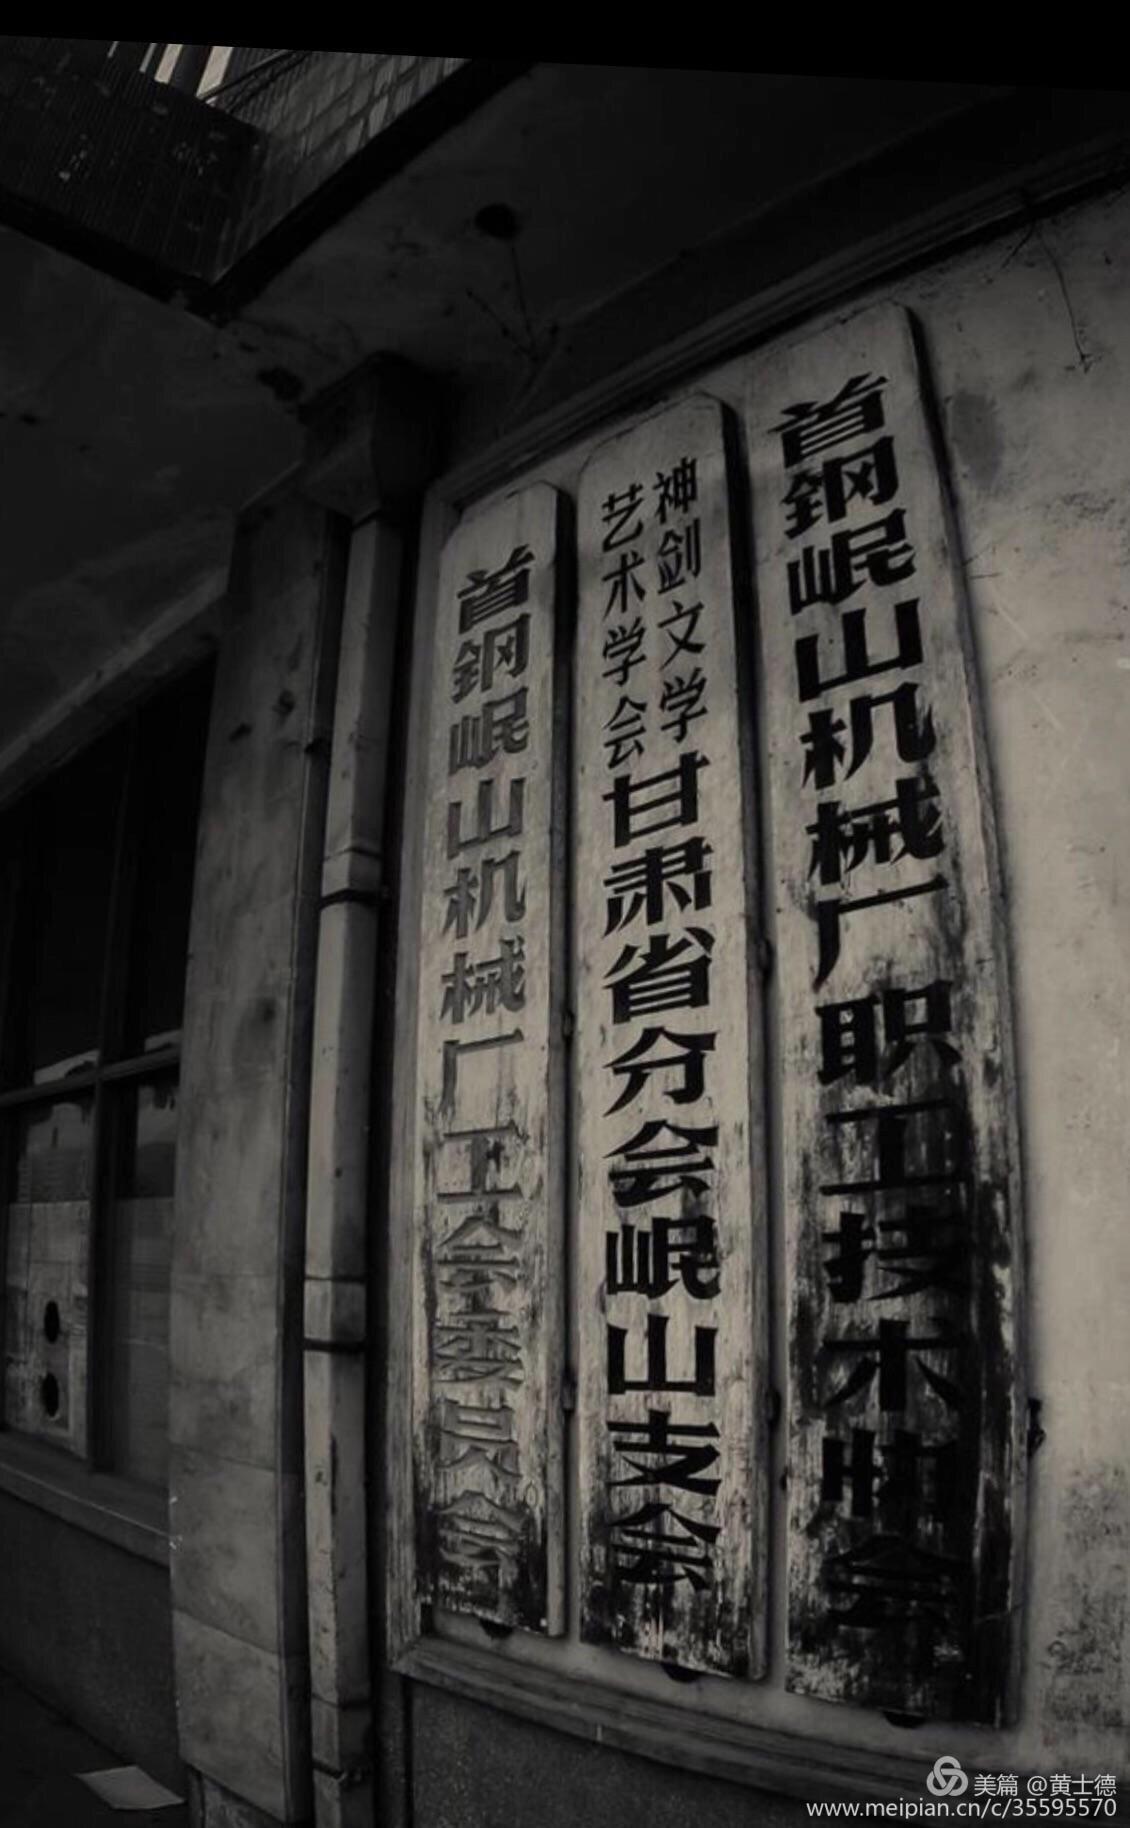 首钢岷山机械厂职工技术协会
神剑文学
艺术学会
甘肃省分会岷山支会
首钢岷山机械厂工会委员会
美篇 @黄士德
www.meipian.cn/c/35595570